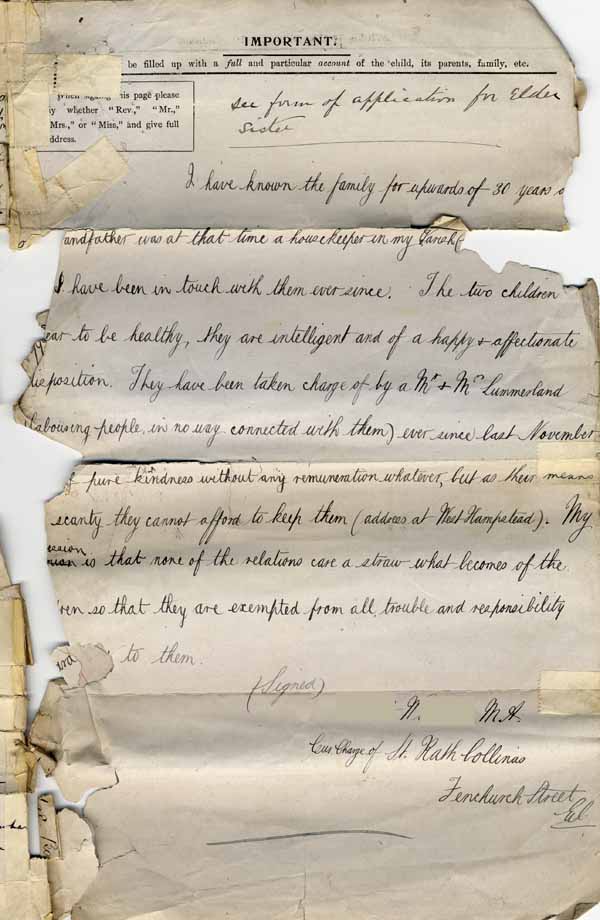 IMPORTANT.
be filled up with a full and particular account of the child, its parents, family, etc.
When signing this page please
whether "Rev.," "Mr.,"
Mrs.," or "Miss," and give full
ddress.
see form of application for Elder
Sister
I have known the family for upwards of 30 years
andfather was at that time a housekeeper in my Parish
I have been in touch with them ever since. The two children
ear to be healthy, they are intelligent and of a happy & affectionate
disposition. They have been taken charge of by a Mr & Mrs Summerland
(labouring people, in no way connected with them) ever since last November
of pure kindness without any remuneration whatever, but as their means
scanty they cannot afford to keep them (address at West Hampstead). My
ession
is that none of the relations care a straw what becomes of the
ren so that they are exempted from all trouble and responsibility
ard to them.
(Signed)
W. M.A.
Cur Charge of St. Kath Collinas
Fenchurch Street